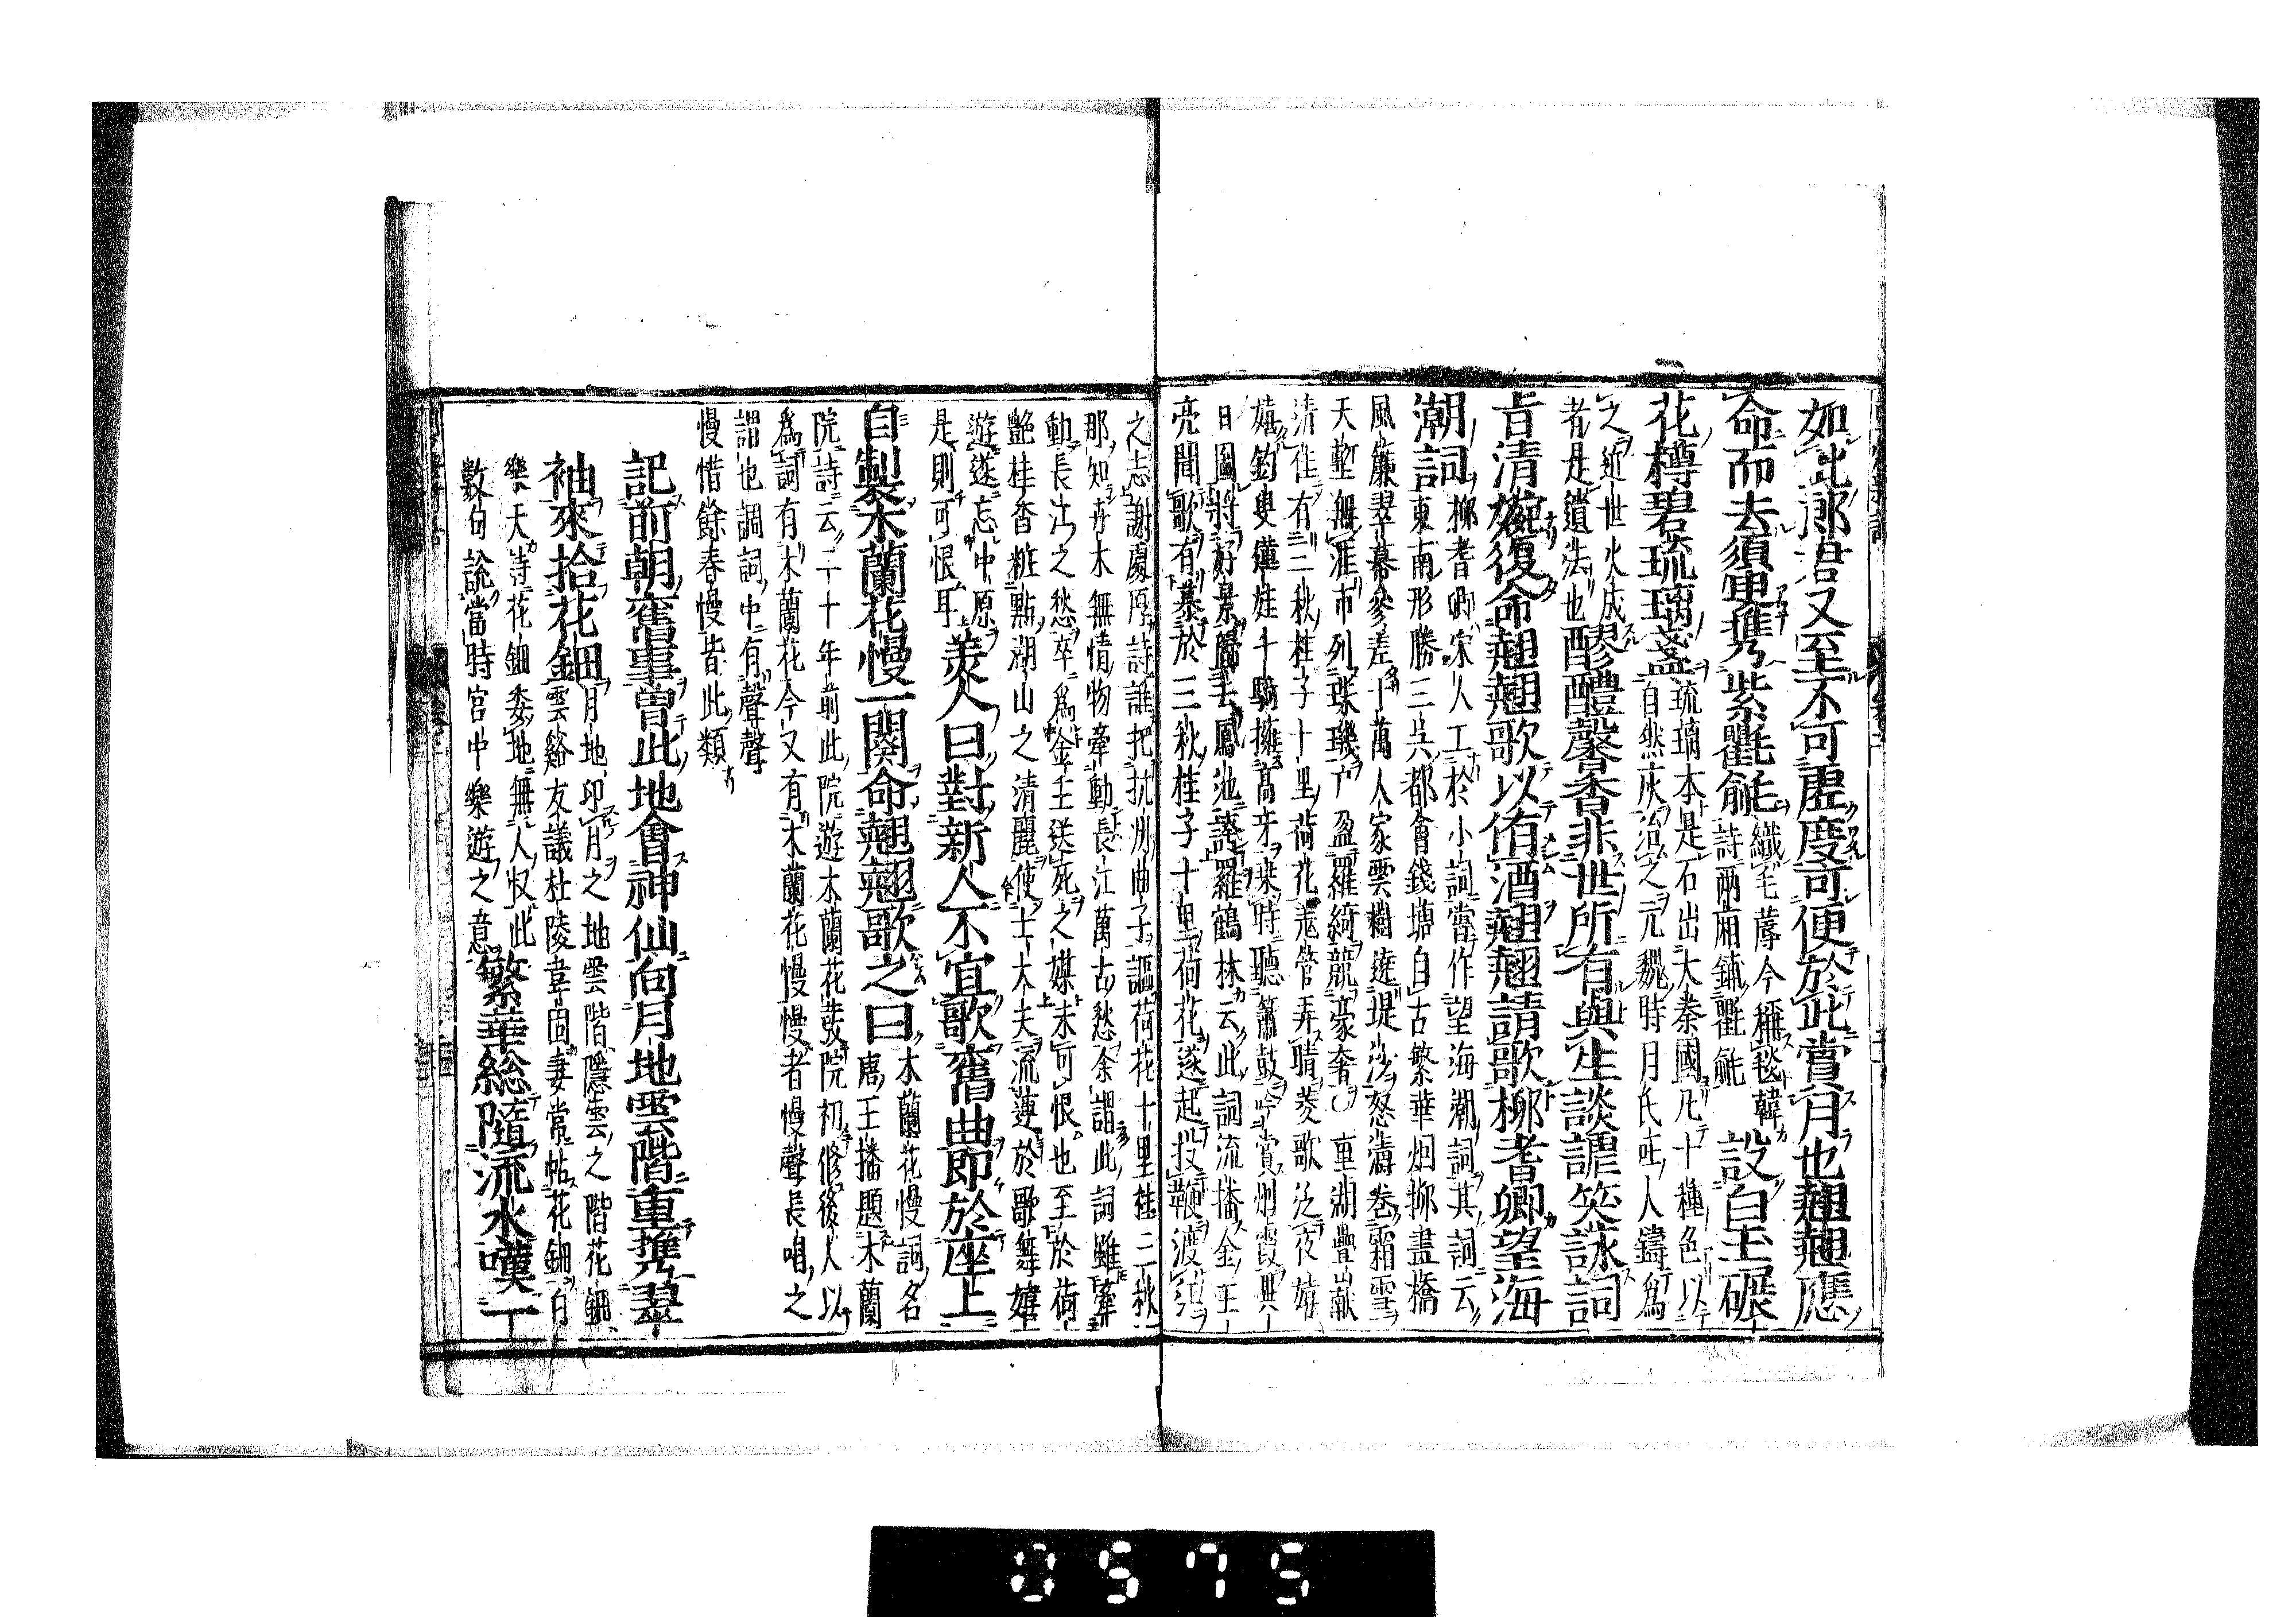 如此郎君又至不可虛度可便於此賞月也翹翹應
命而去須臾攜紫氍毹織毛蓐今稱毯韓詩兩廂鋪氍毹設白玉碾
花樽碧琉璃盞琉璃本是石出大秦國凡十種色以自然灰治之元魏時月氏旺人鑄為
之近世火成者是遺法也醪醴馨香非世所有與生談謔笑詠詞
旨清婉復命翹翹歌以侑酒翹翹請歌柳耆卿望海
潮詞柳耆卿宋人工於小詞嘗作望海潮詞其詞云
東南形勝三吳都會錢塘自古繁華烟柳畫橋
風簾翠幕參差十萬人家雲樹遶堤沙怒濤卷霜雪
天塹無涯市列珠璣戶盈羅綺競豪奢 重湖疊巘
清佳有三秋桂子十里荷花羌管弄晴菱歌泛夜嬉
嬉釣叟蓮娃千騎擁高牙乘時聽簫鼓吟賞烟霞異
日圖將好景歸去鳳池誇羅鶴林云此詞流播金主
亮聞歌有慕於三秋桂子十里荷花遂起投鞭渡江
之志謝處厚詩誰把杭州曲子謳荷花十里桂三秋
那知卉木無情物牽動長江萬古愁余謂此詞雖牽
動長江之愁卒為金主送死之媒未可恨也至於荷
艷桂香粧點湖山之清麗使士大夫流連於歌舞嬉
遊遂忘中原是則可恨耳
美人曰對新人不宜歌舊曲即於座上
自製木蘭花慢一闋命翹翹歌之曰木蘭花慢詞名唐王播題木蘭
院詩云二十年前此院遊木蘭花發院初修後人以
為詞有木蘭花令又有木蘭花慢慢者慢聲長唱之
謂也調詞中有聲聲
慢惜餘春慢皆此類
記前朝舊事曾此地會神仙向月地雲階重攜翠
袖來拾花鈿月地印月之地雲階隱雲之階花鈿
雲谿友議杜陵韋固妻常帖花鈿白
樂天詩花鈿委地無人收此
數句說當時宮中樂遊之意繁華総隨流水嘆一
0575